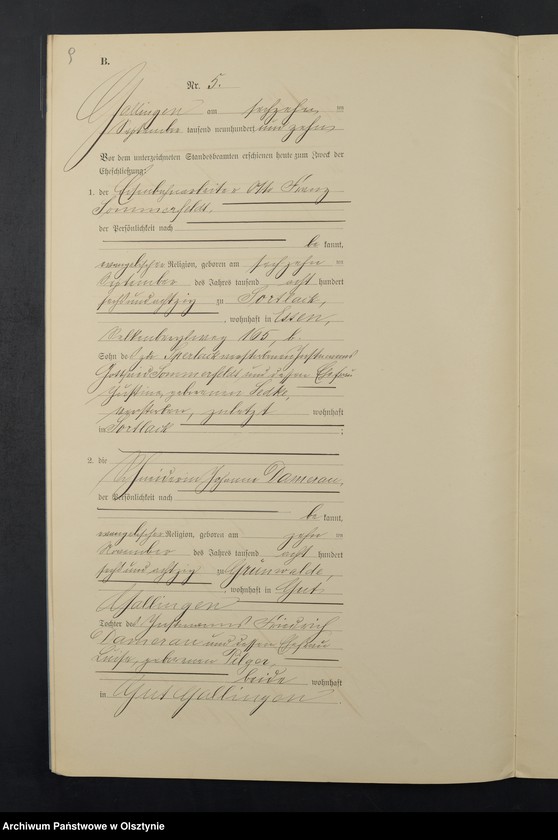 9
B.
Nr. 5.
Gallingen am sechzehn ten
September tausend neunhundert und zehn
Vor dem unterzeichneten Standesbeamten erschienen heute zum Zweck der
Eheschließung:
1. der Eisenbahnarbeiter Otto Franz
Sommerfeldt,
der Persönlichkeit nach
be kannt,
evangelischer Religion, geboren am sechzehn ten
September des Jahres tausend acht hundert
sechs und achtzig zu Sortlack,
, wohnhaft in Essen,
165,
Sohn des zu Sortlack verstorbenen Instmanns
Gottfried Sommerfeldt und dessen Ehefrau
Justine, geborenen
verstorben, zuletzt wohnhaft
in Sortlack ;
2. die
Schneiderin Johanna Damerau,
der Persönlichkeit nach
be kannt,
evangelischer Religion, geboren am zehn ten
November des Jahres tausend acht hundert
sechs und achtzig zu Grünwalde,
, wohnhaft in Gut
Gallingen
Tochter des Instmanns Friedrich
Damerau und dessen Ehefrau
Luise, geborenen Pilger,
beide wohnhaft
in Gut Gallingen
Archiwum Państwowe w Olsztynie